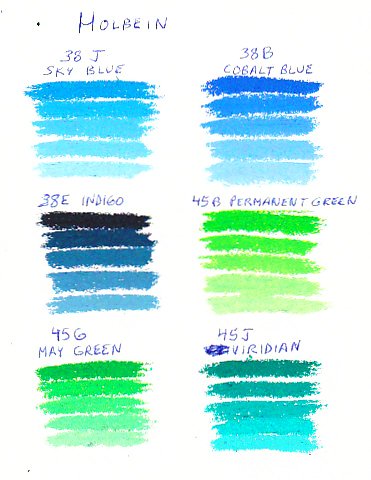 HOLBEIN
38 J
SKY BLUE
38B
COBALT BLUE
38E INDIGO
45B PERMANENT GREEN
45G
MAY GREEN
45J
VIRIDIAN